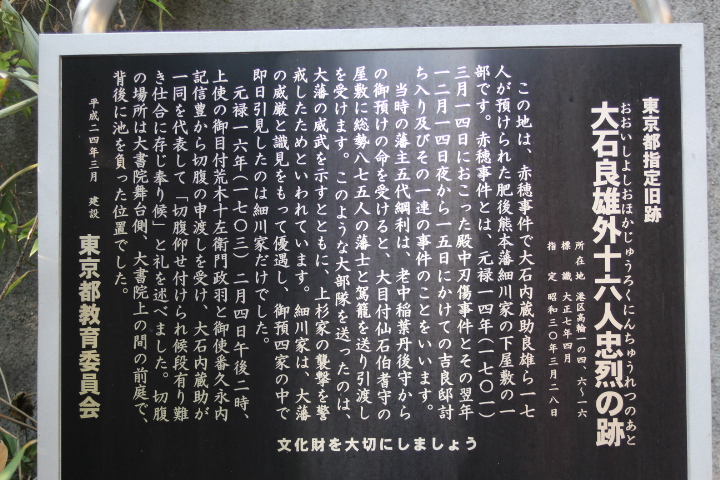 東京都指定旧跡
おおいしよしおほかじゅうろくにんちゅうれつのあと
大石良雄外十六人忠烈の跡
所在地 港区高輪一の四、六〜一六
標識 大正七年四月
指定 昭和三〇年三月二八日
この地は、赤穂事件で大石内蔵助良雄ら一七
人が預けられた肥後熊本藩細川家の下屋敷の一
部です。赤穂事件とは、元禄一四年(一七〇一)
三月一四日におこった殿中刃傷事件とその翌年
一二月一四日夜から一五日にかけての吉良邸討
ち入り及びその一連の事件のことをいいます。
当時の藩主五代綱利は、老中稲葉丹後守から
の御預けの命を受けると、大目付仙石伯耆守の
屋敷に総勢八七五人の藩士と駕籠を送り引渡し
を受けます。このような大部隊を送ったのは、
大藩の威武を示すとともに、上杉家の襲撃を警
戒したためといわれています。細川家は、大藩
の威厳と識見をもって優遇し、御預四家の中で
即日引見したのは細川家だけでした。
元禄一六年(一七〇三)二月四日午後二時、
上使の御目付荒木十左衛門政羽と御使番久永内
記信豊から切腹の申渡しを受け、大石内蔵助が
一同を代表して「切腹仰せ付けられ候段有り難
き仕合に存じ奉り候」と礼を述べました。切腹
の場所は大書院舞台側、大書院上の間の前庭で、
背後に池を負った位置でした。
平成二四年三月 建設
東京都教育委員会
文化財を大切にしましょう